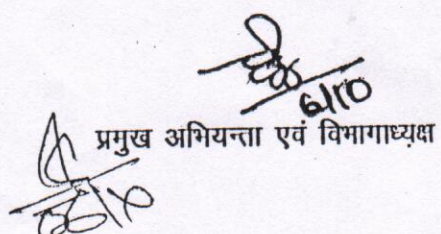 6/10
प्रमुख अभियन्ता एवं विभागाध्यक्ष